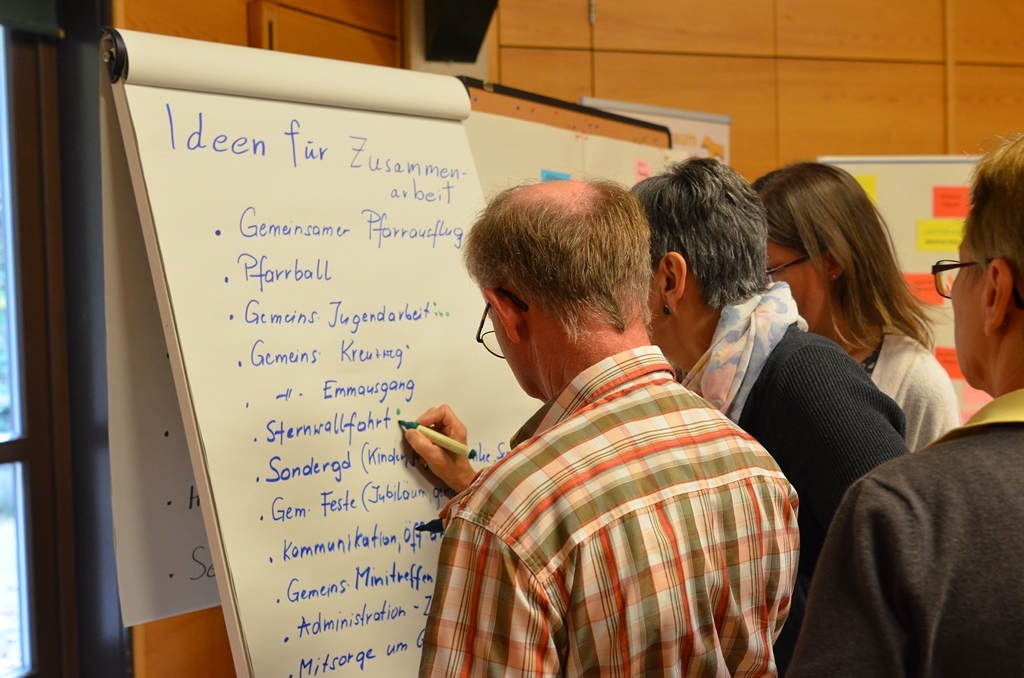 Ideen für Zusammen-
arbeit
• Gemeinsamer Pfarrausflug
• Pfarrball
• Gemeins. Jugendarbeit
• Gemeins. Kreuzweg
• -"- Emmausgang
• Sternwallfahrt
• Sondergd (Kinder
• Gem. Feste (Jubiläum,
• Kommunikation, Öff
• Gemeins. Minitreffen
• Administration -
• Mitsorge um